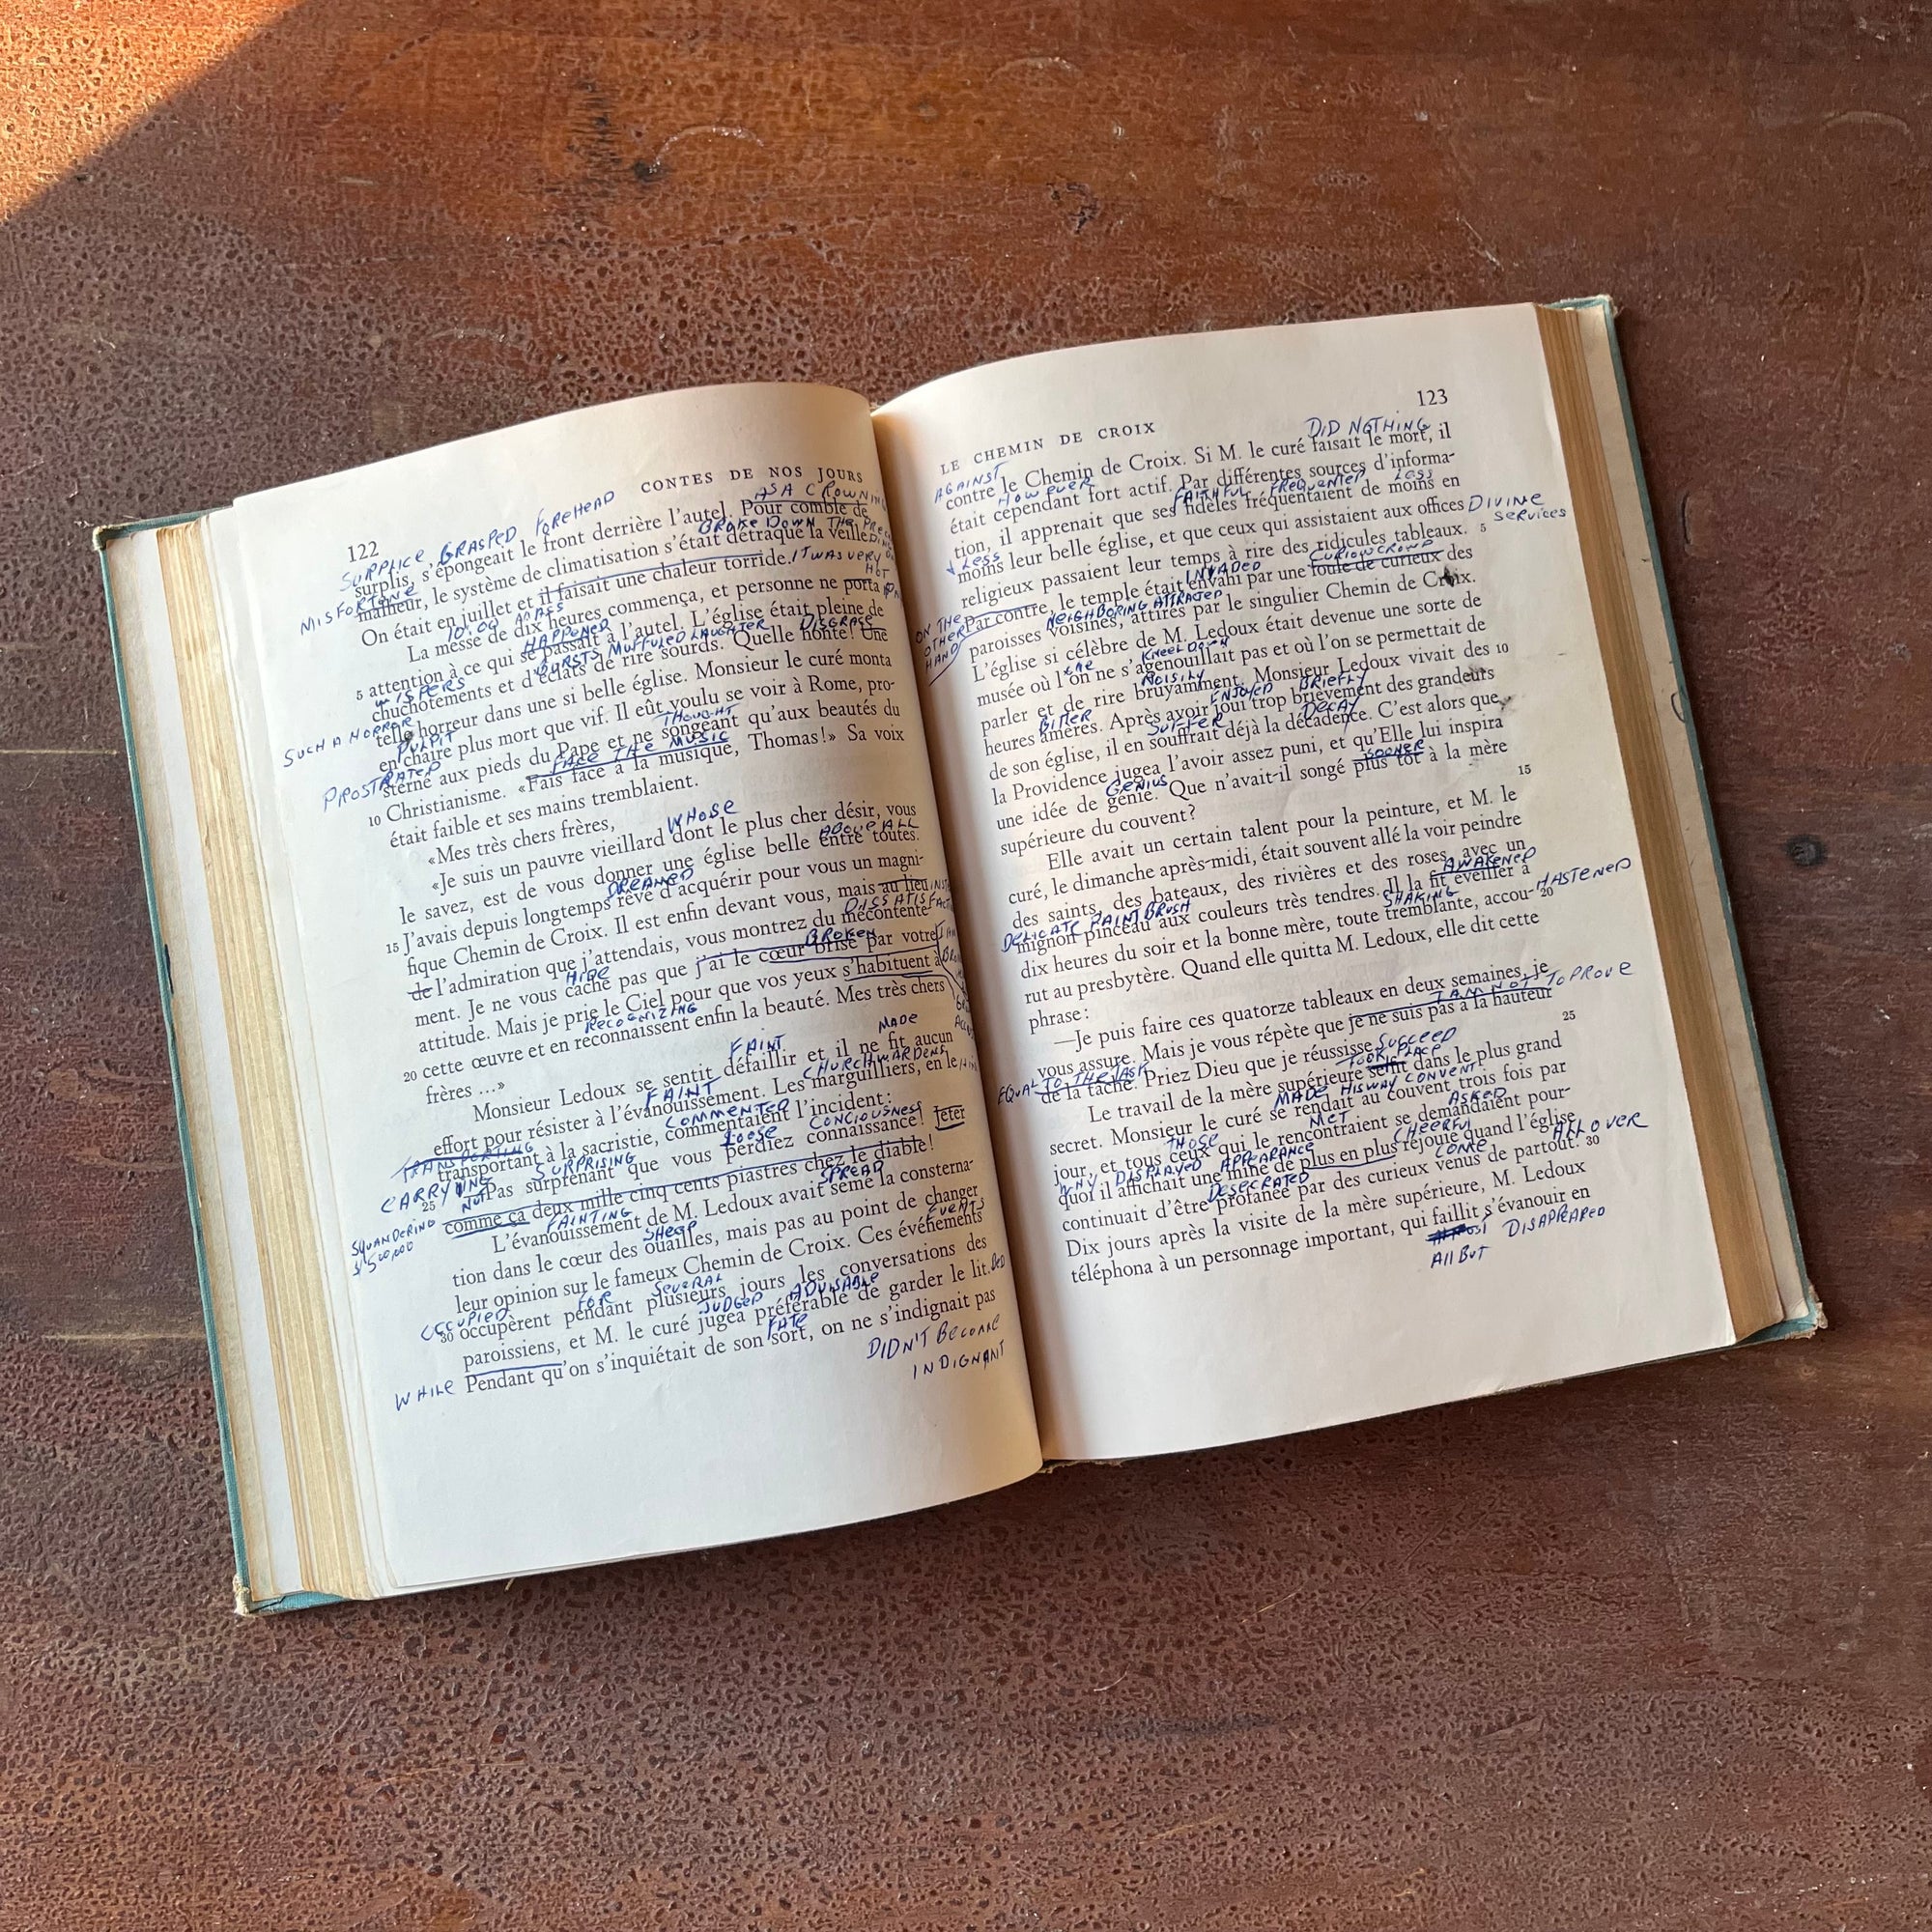 122
CONTES DE NOS JOURS
AS A CROWNING
SURPLICE, GRASPED FOREHEAD
surplis, s'épongeait le front derrière l'autel. Pour comble de
BROKE DOWN THE
MISFORTUNE
malheur, le système de climatisation s'était détraqué la veille.
IT WAS VERY HOT
On était en juillet et il faisait une chaleur torride.
10:00 MASS
La messe de dix heures commença, et personne ne porta
HAPPENED
5 attention à ce qui se passait à l'autel. L'église était pleine de
WISPERS BURSTS MUFFLED LAUGHTER DISGRACE
chuchotements et d'éclats de rire sourds. Quelle honte! Une
SUCH A HORROR
telle horreur dans une si belle église. Monsieur le curé monta
PULPIT
en chaire plus mort que vif. Il eût voulu se voir à Rome, pro-
PROSTRATED THOUGHT
sterné aux pieds du Pape et ne songeant qu'aux beautés du
FACE THE MUSIC
10 Christianisme. «Fais face à la musique, Thomas!» Sa voix
était faible et ses mains tremblaient.
«Mes très chers frères,
WHOSE
«Je suis un pauvre vieillard dont le plus cher désir, vous
ABOVE ALL
le savez, est de vous donner une église belle entre toutes.
DREAMED
15 J'avais depuis longtemps rêvé d'acquérir pour vous un magni-
fique Chemin de Croix. Il est enfin devant vous, mais au lieu
de l'admiration que j'attendais, vous montrez du mécontente-
HIDE BROKEN
ment. Je ne vous cache pas que j'ai le cœur brisé par votre
attitude. Mais je prie le Ciel pour que vos yeux s'habituent à
RECOGNIZING
20 cette œuvre et en reconnaissent enfin la beauté. Mes très chers
frères ...»
FAINT MADE
Monsieur Ledoux se sentit défaillir et il ne fit aucun
FAINT CHURCHWARDENS
effort pour résister à l'évanouissement. Les marguilliers, en le
TRANSPORTING COMMENTED
CARRYING
transportant à la sacristie, commentaient l'incident:
NOT SURPRISING LOOSE CONCIOUSNESS
25 —Pas surprenant que vous perdiez connaissance! Jeter
SQUANDERING
comme ça deux mille cinq cents piastres chez le diable!
FAINTING SPREAD
L'évanouissement de M. Ledoux avait semé la consterna-
SHEEP
tion dans le cœur des ouailles, mais pas au point de changer
EVENTS
leur opinion sur le fameux Chemin de Croix. Ces événements
OCCUPIED FOR SEVERAL
30 occupèrent pendant plusieurs jours les conversations des
JUDGED ADVISABLE BED
paroissiens, et M. le curé jugea préférable de garder le lit.
WHILE FATE
Pendant qu'on s'inquiétait de son sort, on ne s'indignait pas
DIDN'T BECOME
INDIGNANT
LE CHEMIN DE CROIX
123
AGAINST DID NOTHING
contre le Chemin de Croix. Si M. le curé faisait le mort, il
HOWEVER
était cependant fort actif. Par différentes sources d'informa-
FAITHFUL FREQUENTED LESS
tion, il apprenait que ses fidèles fréquentaient de moins en
LESS DIVINE SERVICES
moins leur belle église, et que ceux qui assistaient aux offices
religieux passaient leur temps à rire des ridicules tableaux. 5
INVADED CURIOUS CROWD
Par contre, le temple était envahi par une foule de curieux des
ON THE OTHER HAND
NEIGHBORING ATTRACTED
paroisses voisines, attirés par le singulier Chemin de Croix.
L'église si célèbre de M. Ledoux était devenue une sorte de
ONE KNEEL DOWN
musée où l'on ne s'agenouillait pas et où l'on se permettait de
NOISILY
parler et de rire bruyamment. Monsieur Ledoux vivait des 10
BITTER ENJOYED BRIEFLY
heures amères. Après avoir joui trop brièvement des grandeurs
SUFFER DECAY
de son église, il en souffrait déjà la décadence. C'est alors que
la Providence jugea l'avoir assez puni, et qu'Elle lui inspira
GENIUS SOONER
une idée de génie. Que n'avait-il songé plus tôt à la mère
supérieure du couvent? 15
Elle avait un certain talent pour la peinture, et M. le
curé, le dimanche après-midi, était souvent allé la voir peindre
des saints, des bateaux, des rivières et des roses, avec un
DELICATE PAINT BRUSH AWAKENED
mignon pinceau aux couleurs très tendres. Il la fit éveiller à
SHAKING HASTENED
dix heures du soir et la bonne mère, toute tremblante, accou- 20
rut au presbytère. Quand elle quitta M. Ledoux, elle dit cette
phrase:
—Je puis faire ces quatorze tableaux en deux semaines, je
I AM NOT TO PROVE
vous assure. Mais je vous répète que je ne suis pas à la hauteur
EQUAL TO THE TASK SUCCEED
de la tâche. Priez Dieu que je réussisse. 25
TOOK PLACE
Le travail de la mère supérieure se fit dans le plus grand
MADE HIS WAY CONVENT
secret. Monsieur le curé se rendait au couvent trois fois par
THOSE MET ASKED
jour, et tous ceux qui le rencontraient se demandaient pour-
WHY DISPLAYED APPEARANCE CHEERFUL
quoi il affichait une mine de plus en plus réjouie quand l'église
DESECRATED COME ALL OVER
continuait d'être profanée par des curieux venus de partout. 30
Dix jours après la visite de la mère supérieure, M. Ledoux
téléphona à un personnage important, qui faillit s'évanouir en
ALL BUT DISAPPEARED